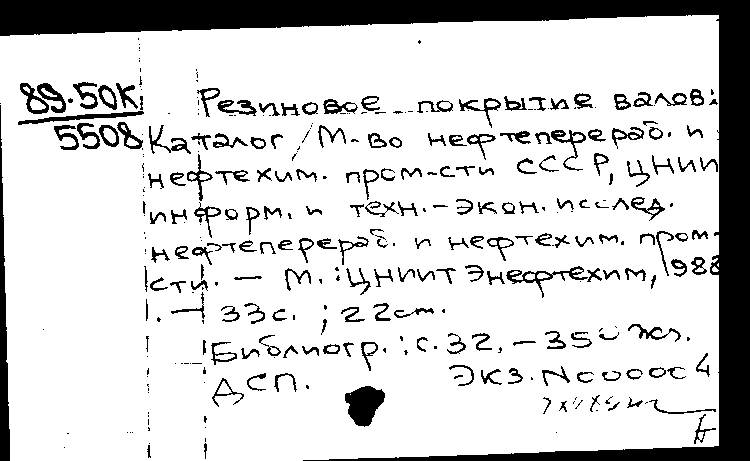 89-50К Резиновое покрытие валов:
5508 Каталог / М-во нефтеперераб. и
нефтехим. пром-сти СССР, ЦНИИ
информ. и техн.-экон. исслед.
нефтеперераб. и нефтехим. пром-
сти. — М. : ЦНИИТЭнефтехим, 1988
. — 33 с. ; 22 см.
Библиогр.: с. 32. — 350 экз.
ДСП. Экз. N000004